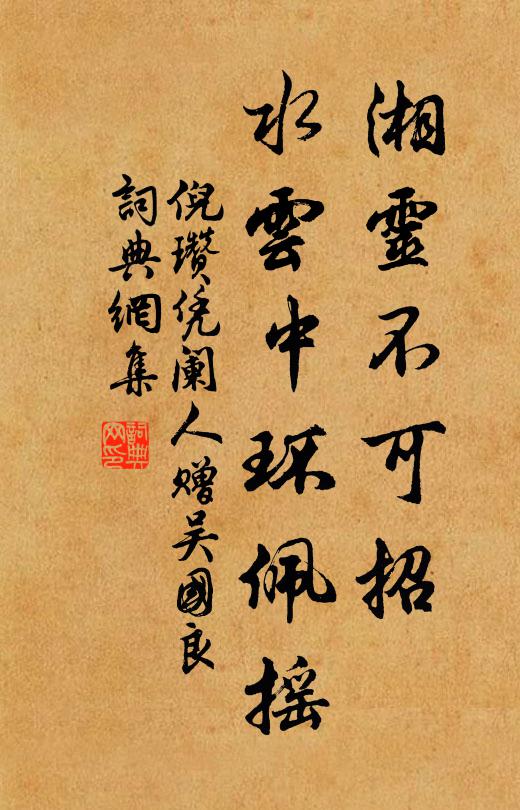 湘靈不可招
水雲中环佩摇
倪瓚凭阑人赠吴國良
詞典網集
詞典网印